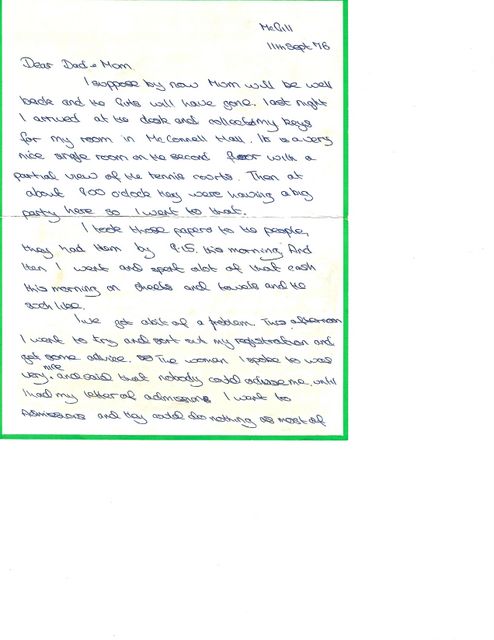 McGill
11th Sept '76
Dear Dad & Mom
I suppose by now Mom will be well
back and the Girls will have gone. Last night
I arrived at the desk and collected my keys
for my room in McConnell Hall. Its a very
nice single room on the second floor with a
partial view of the tennis courts. Then at
about 9.00 o'clock they were having a big
party here so I went to that.
I took those papers to the people,
they had them by 9.15. this morning. And
then I went and spent alot of that cash
this morning on sheets and towels and the
such like.
I've got abit of a problem. This afternoon
I went to try and sort out my registration and
get some advice. The woman I spoke to was
very nice and said that nobody could advise me until
I had my letter of admissions I went to
Admissions and they could do nothing as most of